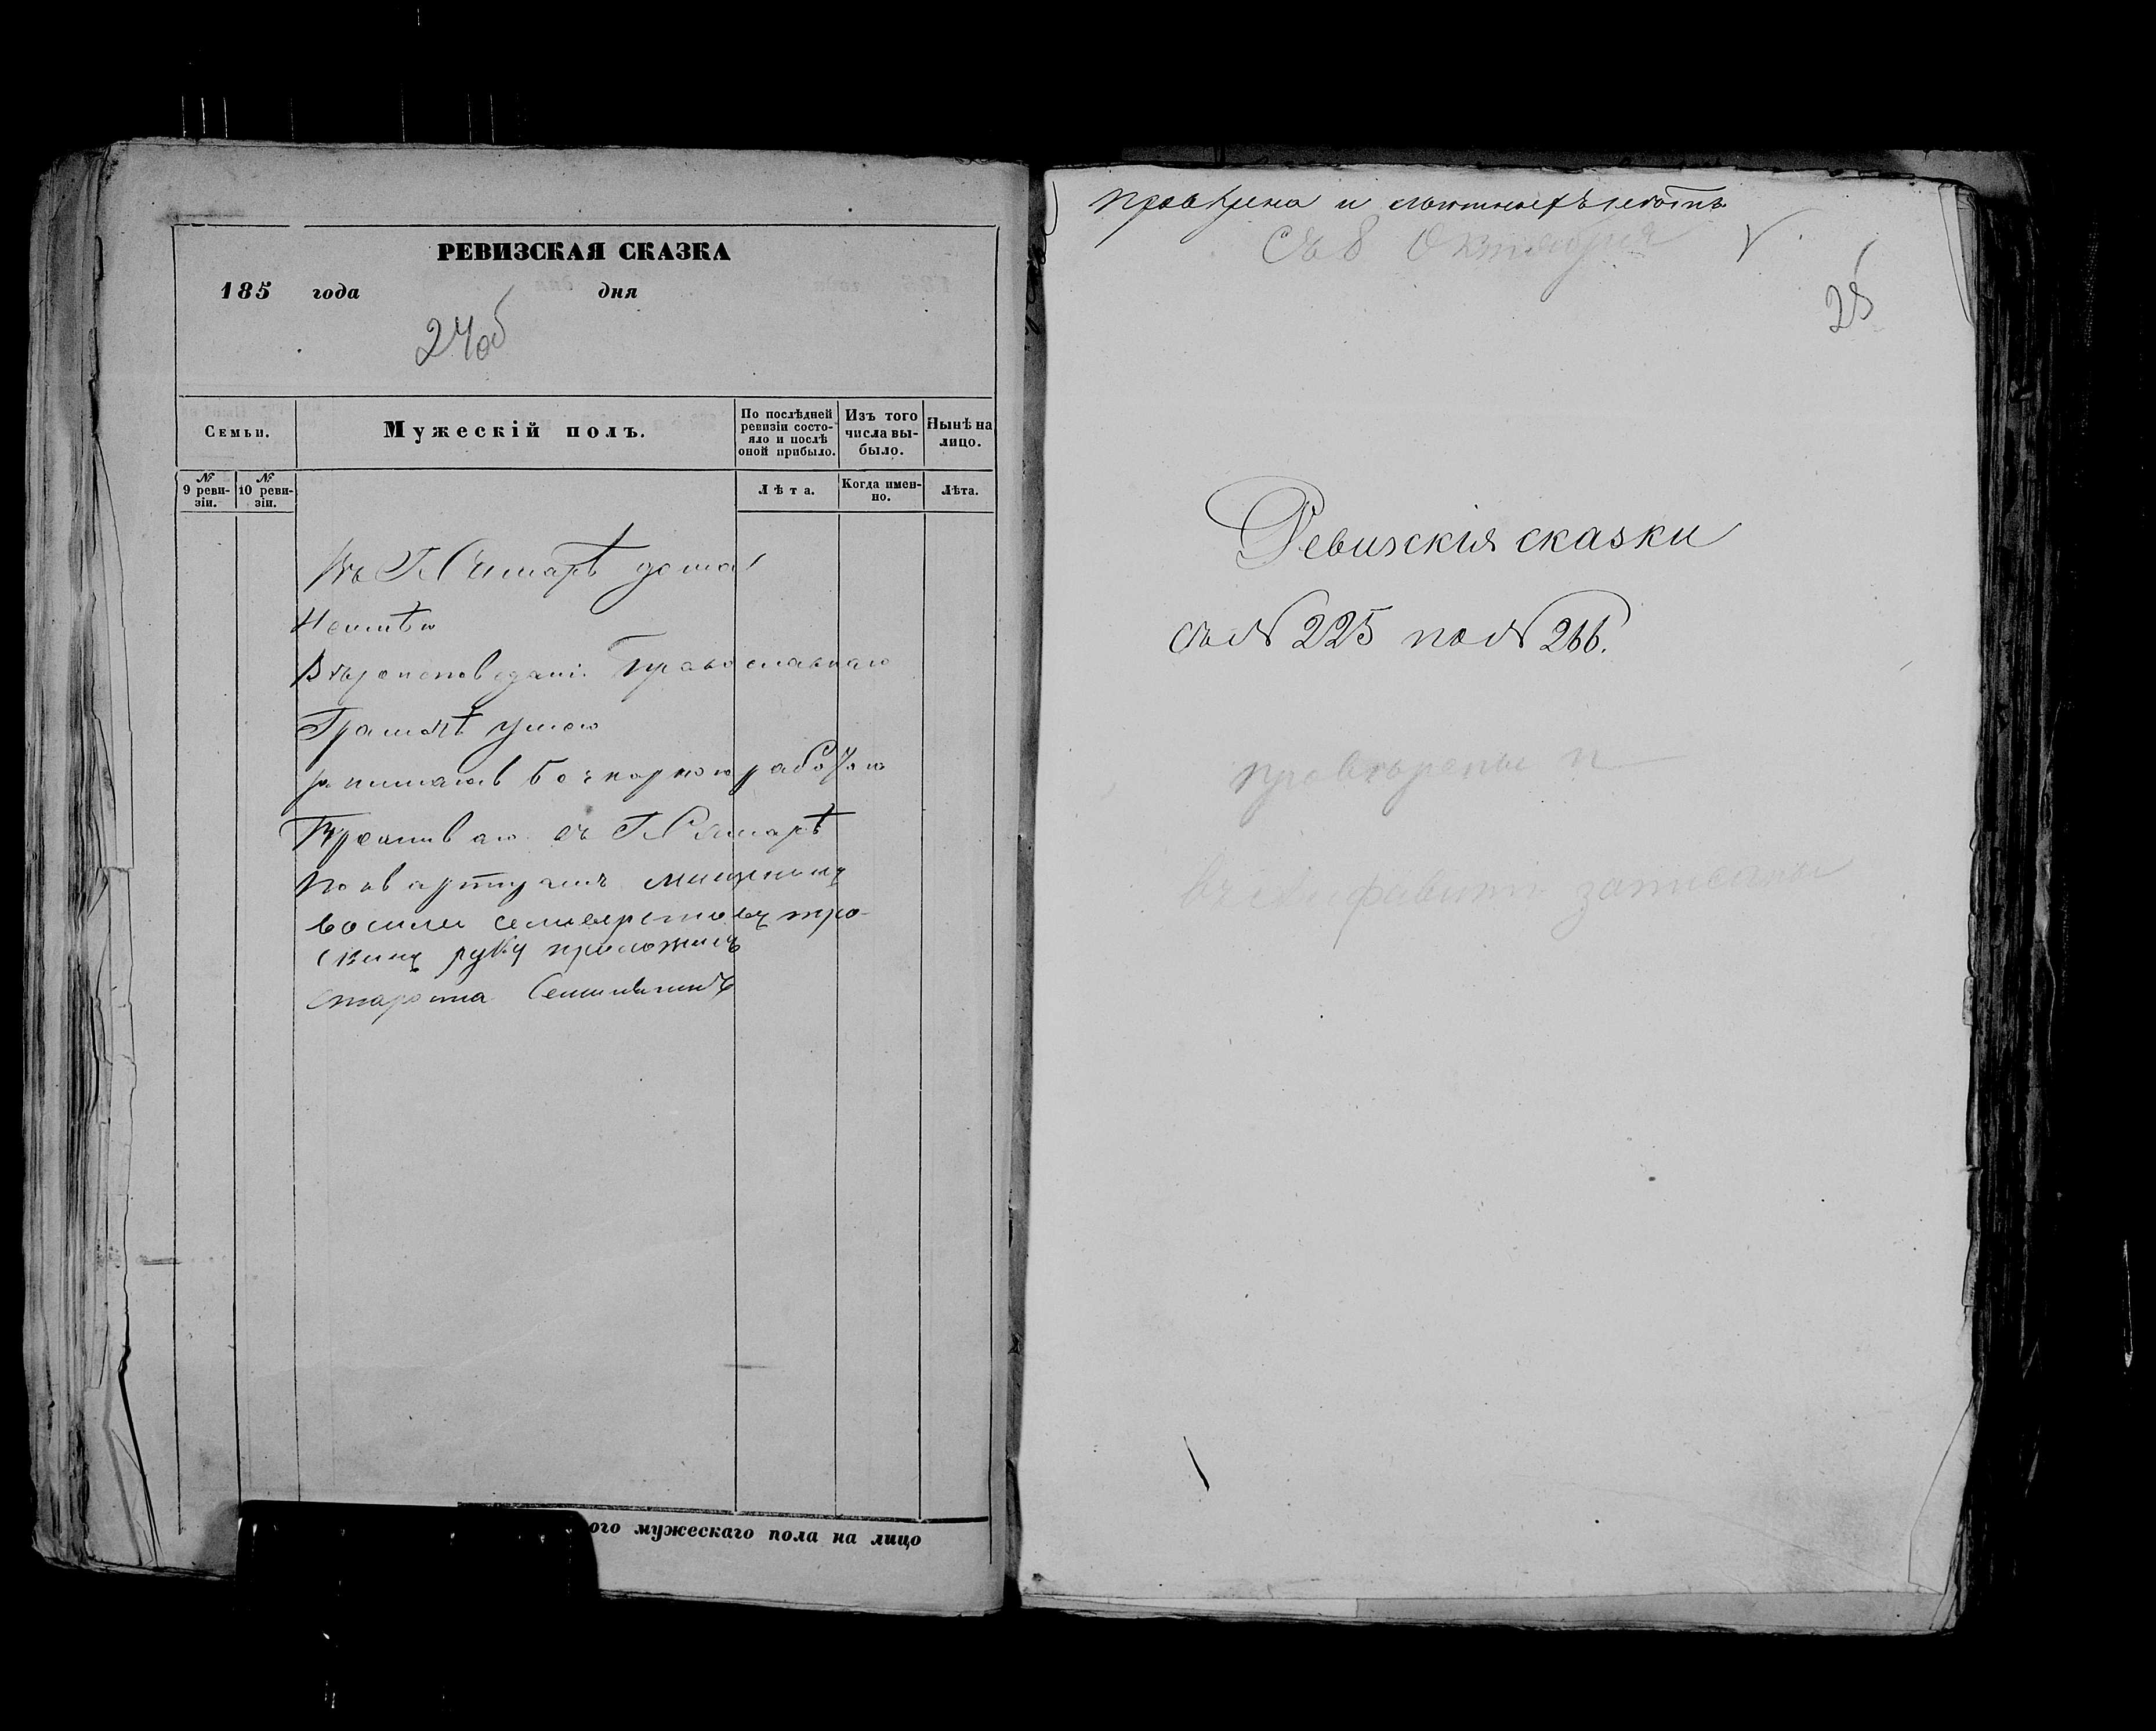 РЕВИЗСКАЯ СКАЗКА
185 года дня
24об
Семьи.
Мужескій полъ.
По послѣдней ревизіи состояло и послѣ оной прибыло.
Изъ того числа выбыло.
Нынѣ на лицо.
№ 9 ревизіи.
№ 10 ревизіи.
Лѣта.
Когда именно.
Лѣта.
Въ Г Самарѣ дома
Неимѣю
Вѣроисповедани Православнаго
Грамотѣ умею
бочкарною работою
Проживаю въ Г Самарѣ
по квартирамъ мищининъ
василеи
руку приложилъ
староста
ого мужескаго пола на лицо
проверена и
съ 8 Октября
25
Ревизскія сказки
съ № 225 по № 266.
проверены
въ алфавитъ записаны